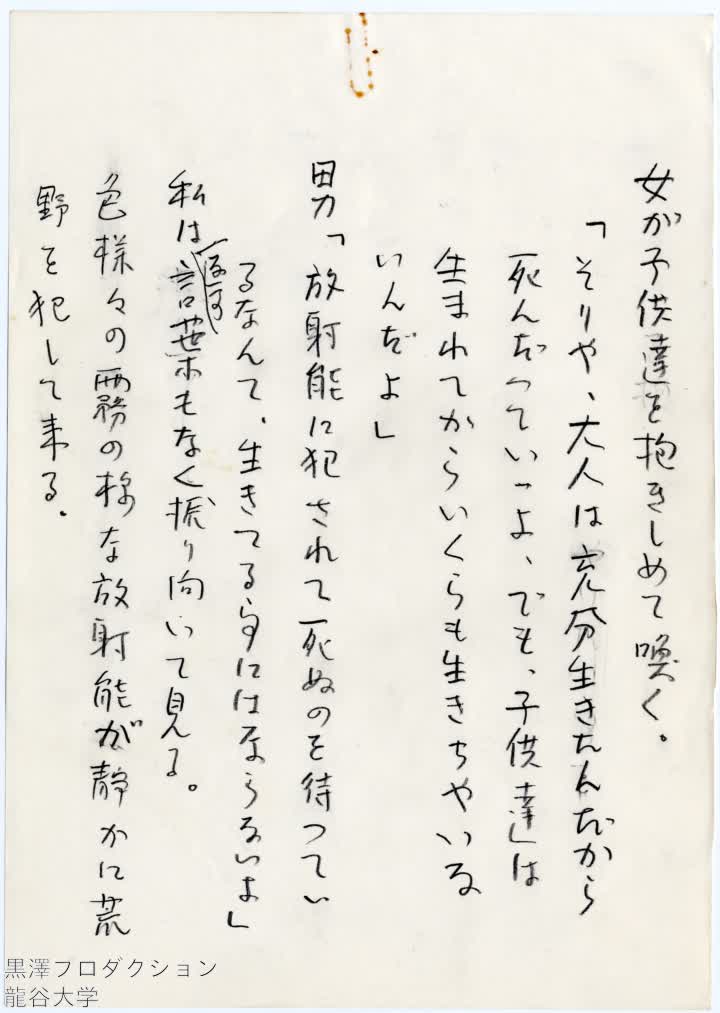 女が子供達を抱きしめて喚く。
「そりや、大人は充分生きたんだから
死んだつていゝよ、でも、子供達は
生まれてからいくらも生きちやいな
いんだよ」
男「放射能に犯されて死ぬのを待つてい
るなんて、生きてる事にはならないよ」
私は返す言葉もなく振り向いて見る。
色様々の霧の様な放射能が静かに荒
野を犯して来る。
黒澤プロダクション
龍谷大学